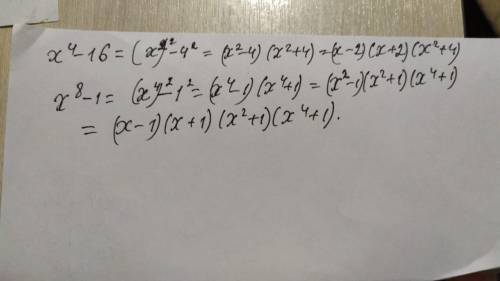 x⁴-16=(x²)²-4²=(x²-4)(x²+4)=(x-2)(x+2)(x²+4)
x⁸-1=(x⁴)²-1²=(x⁴-1)(x⁴+1)=(x²-1)(x²+1)(x⁴+1)
=(x-1)(x+1)(x²+1)(x⁴+1).